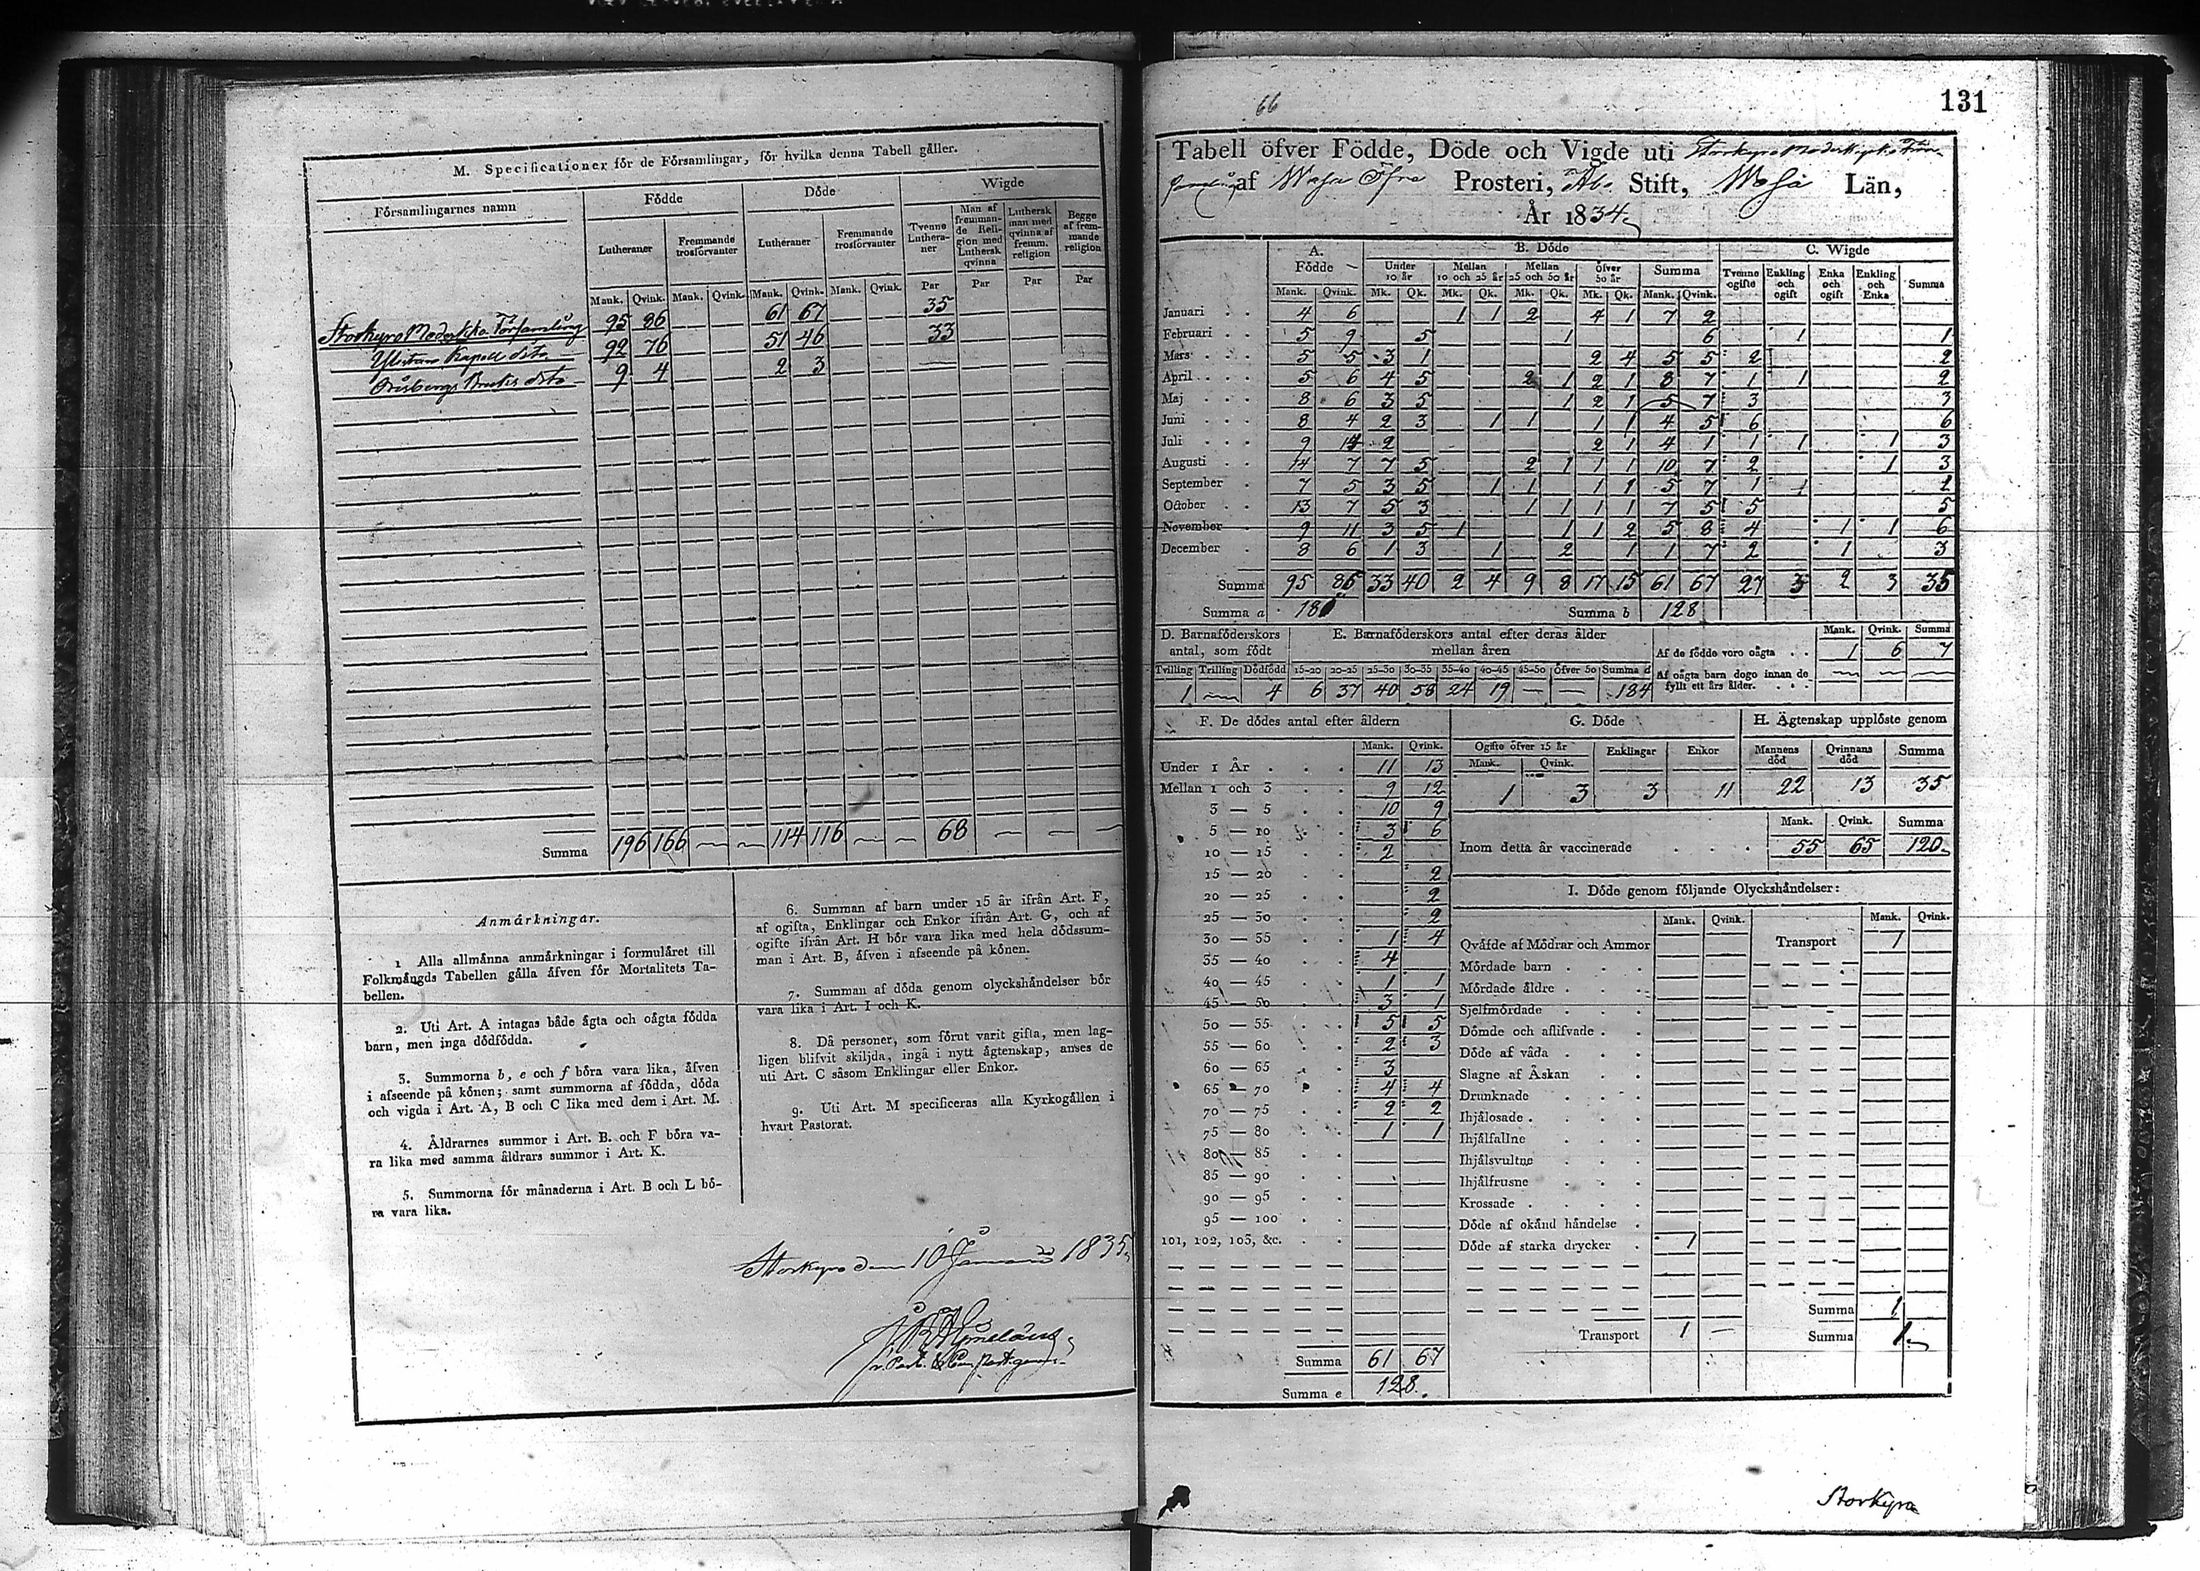 M. Specificationer för de Församlingar, för hvilka denna Tabell gäller.
Församlingarnes namn Födde Döde Wigde
Lutheraner Fremmande trosförvanter Lutheraner Fremmande trosförvanter Tvenne Lutheraner Man af fremmande Religion med Luthersk qvinna Luthersk man med qvinna af fremm. religion Begge af fremmande religion
Mank. Qvink. Mank. Qvink. Mank. Qvink. Mank. Qvink. Par Par Par Par
Storkyro Församling 95 86 61 67 35
Kapell dito 92 76 51 46 33
Bruks dito 9 4 2 3
Summa 196 166 — — 114 116 — — 68 — — —
Anmärkningar.
1 Alla allmänna anmärkningar i formuläret till
Folkmängds Tabellen gälla äfven för Mortalitets Ta-
bellen.
2. Uti Art. A intagas både ägta och oägta födda
barn, men inga dödfödda.
3. Summorna b, e och f böra vara lika, äfven
i afseende på könen; samt summorna af födda, döda
och vigda i Art. A, B och C lika med dem i Art. M.
4. Åldrarnes summor i Art. B. och F böra va-
ra lika med samma åldrars summor i Art. K.
5. Summorna för månaderna i Art. B och L bö-
ra vara lika.
6. Summan af barn under 15 år ifrån Art. F,
af ogifta, Enklingar och Enkor ifrån Art. G, och af
ogifte ifrån Art. H bör vara lika med hela dödssum-
man i Art. B, äfven i afseende på könen.
7. Summan af döda genom olyckshändelser bör
vara lika i Art. I och K.
8. Då personer, som förut varit gifta, men lag-
ligen blifvit skiljda, ingå i nytt ägtenskap, anses de
uti Art. C såsom Enklingar eller Enkor.
9. Uti Art. M specificeras alla Kyrkogällen i
hvart Pastorat.
Storkyro den 10 Januarii 1835
66
131
Tabell öfver Födde, Döde och Vigde uti Storkyro Moderkyrko För-
samling af Wasa Öfre Prosteri, Åbo Stift, Wasa Län,
År 1834
A. Födde B. Döde C. Wigde
Under 10 år Mellan 10 och 25 år Mellan 25 och 50 år Öfver 50 år Summa Tvenne ogifte Enkling och ogift Enka och ogift Enkling och Enka Summa
Mank. Qvink. Mk. Qk. Mk. Qk. Mk. Qk. Mk. Qk. Mank. Qvink.
Januari 4 6 1 1 2 4 1 7 2
Februari 5 9 5 1 6 1 1
Mars 5 5 3 1 2 4 5 5 2 2
April 5 6 4 5 2 1 2 1 8 7 1 1 2
Maj 8 6 3 5 1 2 1 5 7 3 3
Juni 8 4 2 3 1 1 1 1 4 5 6 6
Juli 9 14 2 2 1 4 1 1 1 1 3
Augusti 14 7 7 5 2 1 1 1 10 7 2 1 3
September 7 5 3 5 1 1 1 1 5 7 1 1
October 13 7 5 3 1 1 1 1 7 5 5 5
November 9 11 3 5 1 1 1 2 5 8 4 1 1 6
December 8 6 1 3 1 2 1 1 7 2 1 3
Summa 95 86 33 40 2 4 9 8 17 15 61 67 27 3 2 3 35
Summa a 181 Summa b 128
D. Barnaföderskors antal, som födt E. Barnaföderskors antal efter deras ålder mellan åren Mank. Qvink. Summa
Af de födde voro oägta 1 6 7
Tvilling Trilling Dödfödd 15-20 20-25 25-30 30-35 35-40 40-45 45-50 Öfver 50 Summa d Af oägta barn dogo innan de fyllt ett års ålder. — — —
1 — 4 6 37 40 58 24 19 — — 184
F. De dödes antal efter åldern G. Döde H. Ägtenskap upplöste genom
Mank. Qvink. Ogifte öfver 15 år Enklingar Enkor Mannens död Qvinnans död Summa
Under 1 År 11 13 Mank. Qvink.
Mellan 1 och 3 9 12 1 3 3 11 22 13 35
3 — 5 10 9
5 — 10 3 6 Mank. Qvink. Summa
10 — 15 2 Inom detta år vaccinerade 55 65 120
15 — 20 2
20 — 25 2 I. Döde genom följande Olyckshändelser:
25 — 30 2 Mank. Qvink. Mank. Qvink.
30 — 35 1 4 Qväfde af Mödrar och Ammor Transport 1
35 — 40 4 Mördade barn
40 — 45 1 1 Mördade äldre
45 — 50 3 1 Sjelfmördade
50 — 55 5 5 Dömde och aflifvade
55 — 60 2 3 Döde af våda
60 — 65 3 Slagne af Åskan
65 — 70 4 4 Drunknade
70 — 75 2 2 Ihjälosade
75 — 80 1 1 Ihjälfallne
80 — 85 Ihjälsvultne
85 — 90 Ihjälfrusne
90 — 95 Krossade
95 — 100 Döde af okänd händelse
101, 102, 103, &c. Döde af starka drycker 1
Summa 1
Transport 1 — Summa 1
Summa 61 67
Summa e 128
Storkyro